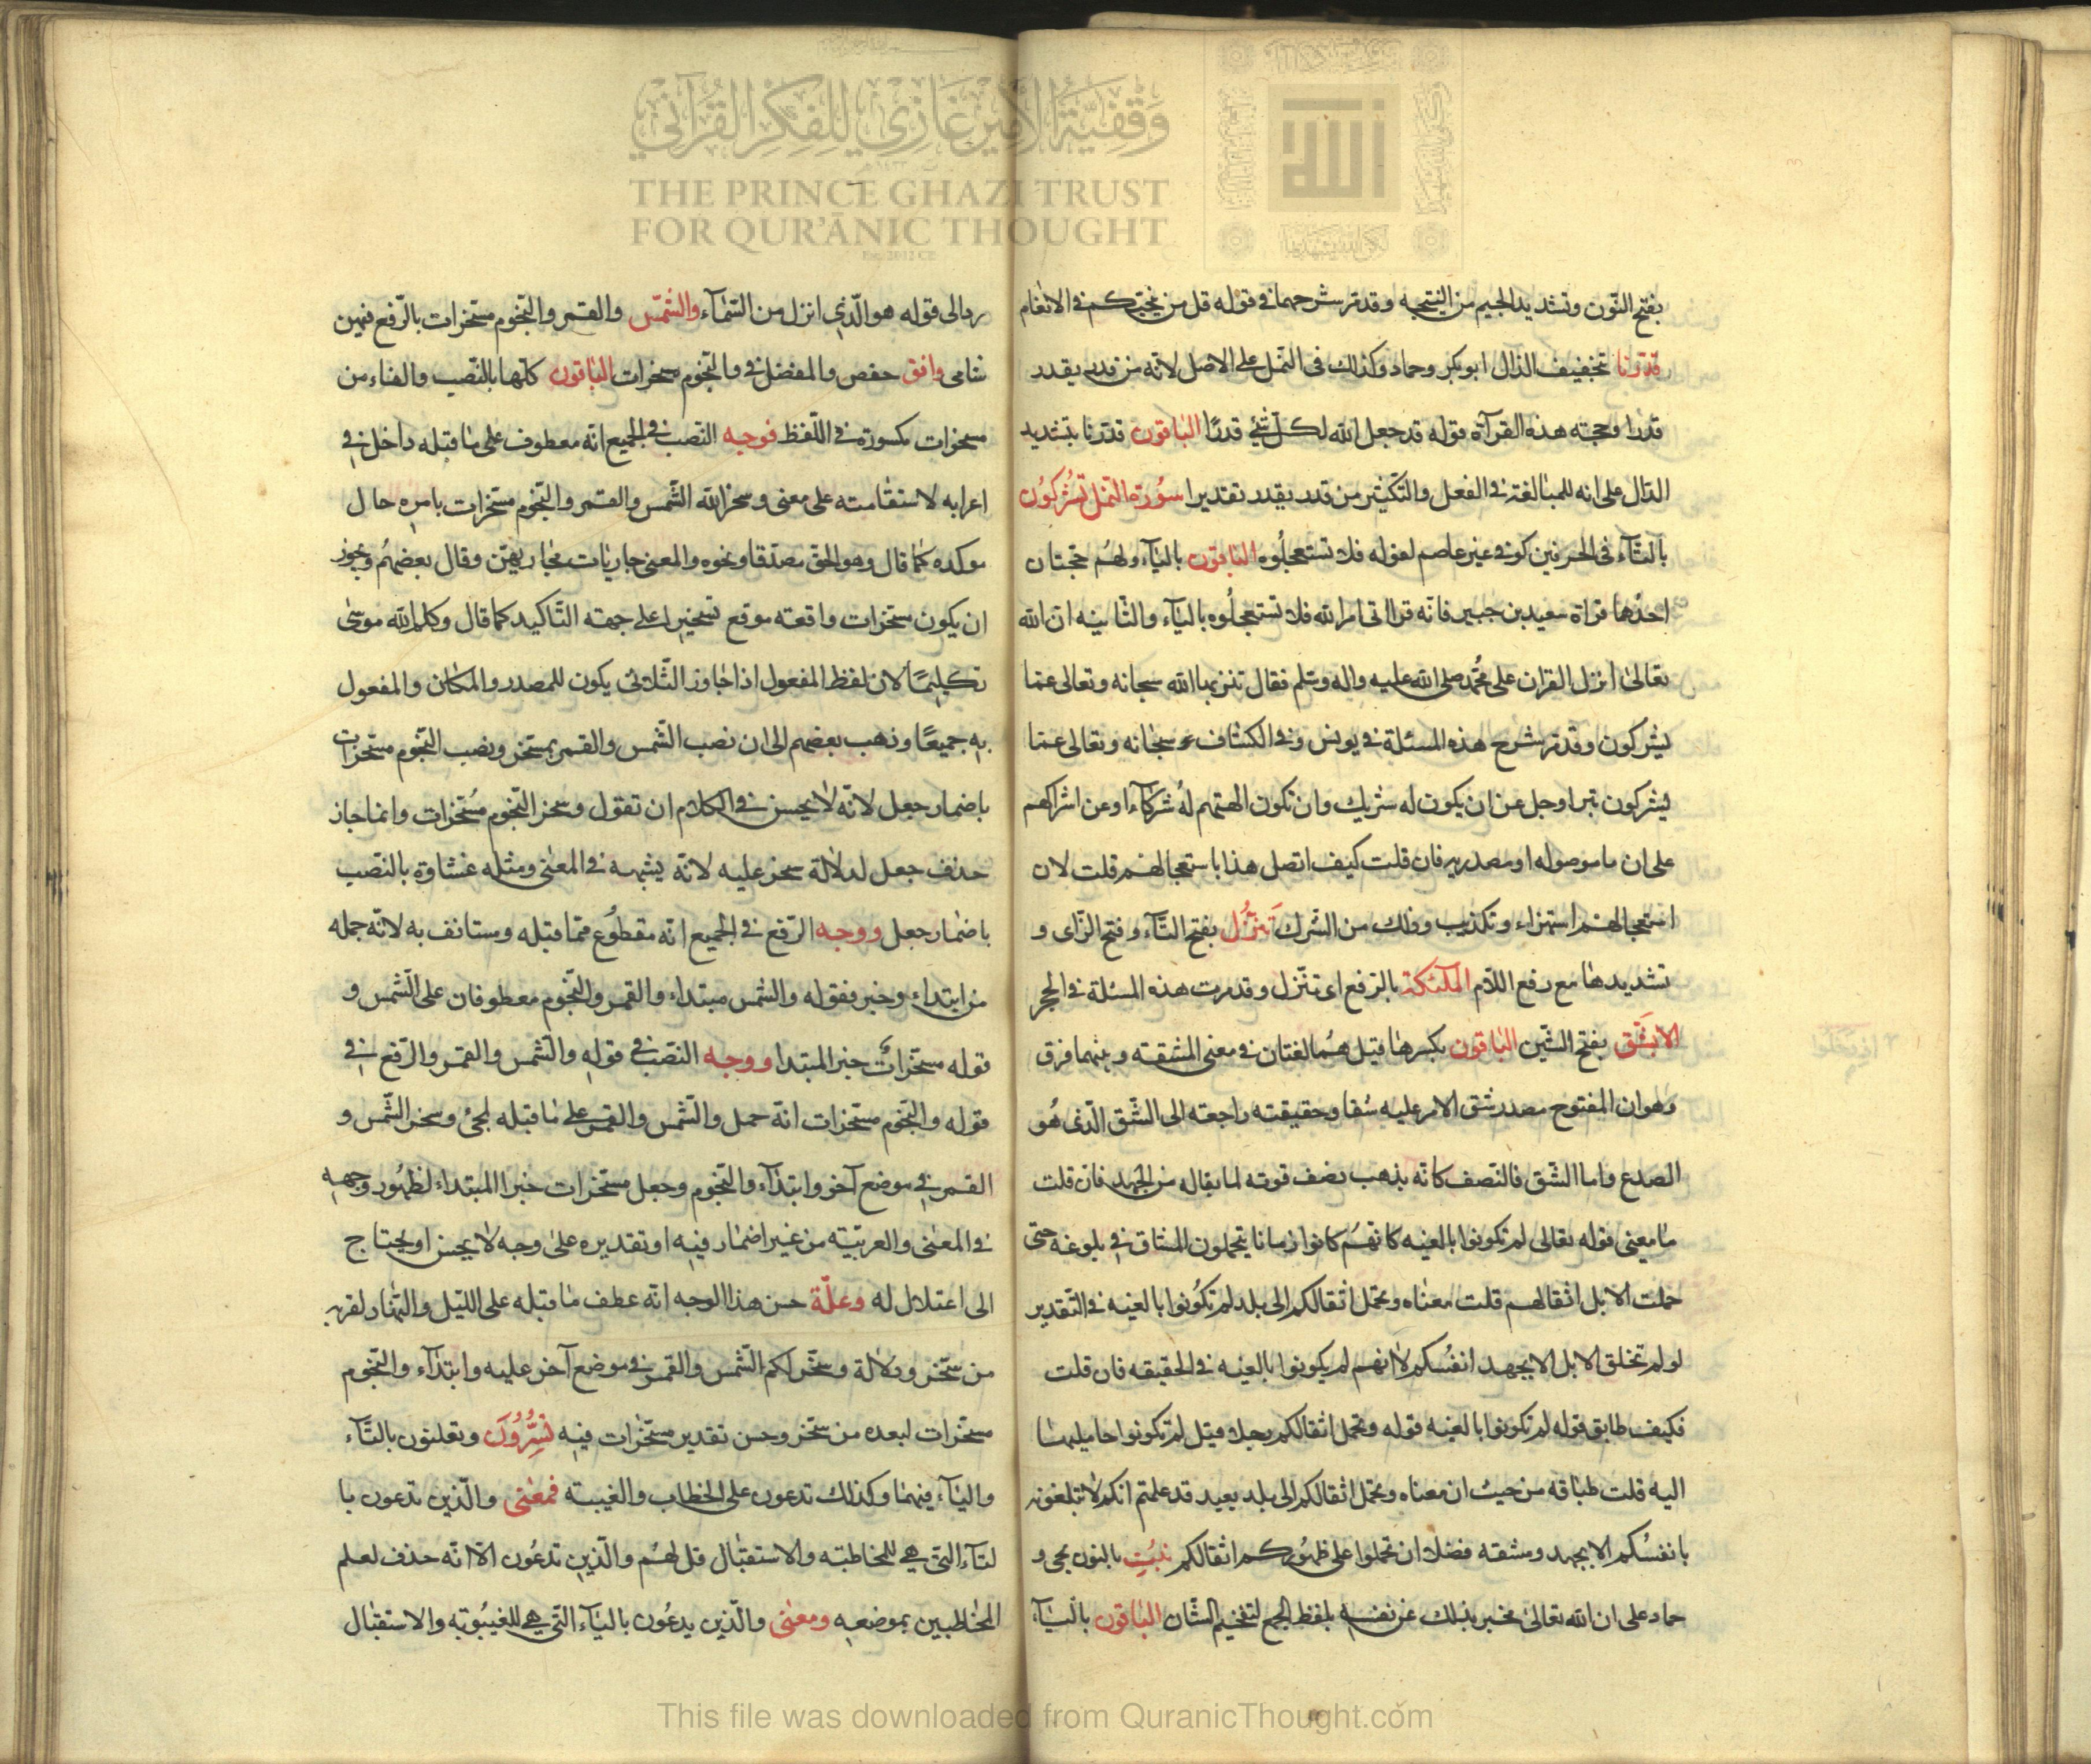 وقفية الأمير غازي للفكر القرآني
THE PRINCE GHAZI TRUST
FOR QUR'ĀNIC THOUGHT
الله
بفتح النّون وتشديد الجيم من التنجيه وقد مّر شرحهما في قوله قل من ينجّيكم في الانعام
قدرنا بتخفيف الدال ابو بكر وحماد وكذلك فى النمل على الاصل لانّه من قدر يقدر
قدرا وحجته هذه القرآة قوله قد جعل الله لكلّ شئ قدرًا الباقون قدّرنا بتشديد
الدّال على انه للمبالغة في الفعل والتّكثير من قدر يقدر تقديرا سورة النحل تُشركُون
بالتّآء فى الحرفين كوفي غير عاصم لقوله فلا تستعجلُوه الباقون باليَآء ولهُم حجّتان
احدٰهما قراة سعيد بن جبير فانّه قرا اتى امر الله فلا تستعجلُوه باليَآء والثّانيه انّ الله
تعالىٰ انزل القران على محُمّد صلى الله عليه واله وسّلم فقال تنزيها الله سبحانه وتعالى عمّا
يشركون وقد مّر شرح هذه المسئلة في يونس وفي الكشاف سبحٰانه وتعالى عمّا
يشركون تبرا وجل عن ان يكون له شريك وان تكون الهتهم لهُ شركآءًا وعن اشراكهم
على ان ما موصوله او مصدريه فان قلت كيف اتصل هذا باستعجالهم قلت لان
استعجالهم استهزاء وتكذيب وذلك من الشّرك تَنَزَّلُ بفتح التّآء وفتح الزّاى و
تشديدهٰا مع رفع اللاّم الملَئكة بالرّفع اى تتنّزل وقد مرت هذه المسئلة في الحجر
الا بشَق بفتح الشّين الباقون بكسرهٰا قيل هُما لغتان في معنى المشقّة وبينهما فرق
وهو ان المفتوح مصدر شق الامر عليه شقا وحقيقته راجعة الى الشّق الّذى هُو
الصدع واما الشّق فالنّصف كانّه يذهب نصف قوته لما يقاله من الجهد فان قلت
مٰا معنى قوله تعالى لم تكونوا بالغيه كانهُم كانوا زمانا يتحملون المشاق في بلوغه حتى
حملت الابل اثقالهم قلت معنٰاه وتحمل اثقالكم الى بلد لم تكُونوا بالغيه في التّقدير
لو لم تخلق الابل الا بجهد انفُسكم لا انهم لم يكونوا بالغيه في الحقيقه فان قلت
فكيف طابق قوله لم تكونوا بالغيه قوله وتحمل اثقالكم وهلا قيل لم تكونوا حامليهٰا
اليه قلت طبٰاقه من حيث ان معناه وتحمل اثقالكم الى بلد بعيد قد علمتم انكم لا تبلغونه
بانفسُكم الا بجهد ومشقه فضلا ان تحملوا على ظهُوركم اثقالكم نُنبت بالنون يحيى و
حماد على ان الله تعالىٰ مخبر بذلك عن نفسه بلفظ الجمع لتفخيم الشّان البٰاقون باليَآء
ردا لى قوله هو الّذي انزل من السّمٰآء والشّمس والقمر والنّجوم مسّخرات بالرّفع فيهن
شامى وافق حفص والمفضل في والنّجوم مسخرات البٰاقون كلّها بالنّصب والتاء من
مسخرات مكسورة في اللّفظ فوجه النّصب في الجميع انّه معطوف على مٰا قبله داخل في
اعرابه لاستقٰامته على معنى وسخر الله الشّمس والقمر والنّجوم مسّخرات بامره حال
موكده كما قال وهو الحق مصدّقا ونحوه والمعنى جاريٰات مجاريهّن وقال بعضهُم ويجوز
ان يكون مسّخرات واقعة موقع تسخيرا على جهة التّاكيد كما قال وكلم الله موسىٰ
تكليمًا لان لفظ المفعول اذا جٰاوز الثّلاثى يكون للمصدر والمكان والمفعول
به جميعًا وذهب بعضهم الى ان نصب الشّمس والقمر بسّخر ونصب النّجوم مسّخرات
باضمار جعل لانّه لا يحسن في الكلام ان تقول وسخر النّجوم مُسّخرات وانما جاز
حذف جعل لدلالة سخر عليه لانّه يشبهه في المعنى ومثله غشاوة بالنّصب
باضمٰار جعل ووجه الرّفع في الجميع انّه مقطوُع ممّا قبله ومستانف به لانّه جمله
من ابتداء وخبر فقوله والشمس مبتداء والقمر والنّجوم معطوفان على الشّمس و
قوله مسّخراتُ خبر المبتدا ووجه النصب في قوله والشّمس والقمر والرّفع في
قوله والنّجوم مسّخرات انّه حمل والشّمس والقمر على مٰا قبله لمجئ وسخر الشّمس و
القمر في موضع آخر وابتدآء والنّجوم وجعل مسّخرات خبر المبتداء لظهُور وجهه
في المعنٰى والعربيّة من غير اضمٰار فيه او تقديره علىٰ وجه لا يحسن او يحتاج
الى اعتلال له وعلّة حسن هذا الوجه انّه عطف مٰا قبله على اللّيل والنّهار لقربه
من سّخر ودلالة وسخّر لكم الشّمس والقمر في موضع آخر عليه وابتدآء والنّجوم
مسّخرات لبعده من سّخر وحسن تقدير مسّخرات فيه تُسِّرُونَ وتعلنون بالتّآء
واليَآء فيهمٰا وكذلك تدعون على الخطاب والغيبة فمعنى والّذين تدعون با
لتآء التي هي للمخاطبة والاستقبٰال قل لهُم والّذين تدعُون الاّ انّه حذف لعلم
المخٰاطبين بموضعه ومعنى والّذين يدعُون باليَآء التّي هي للغيبُوبة والاستقبٰال
This file was downloaded from QuranicThought.com